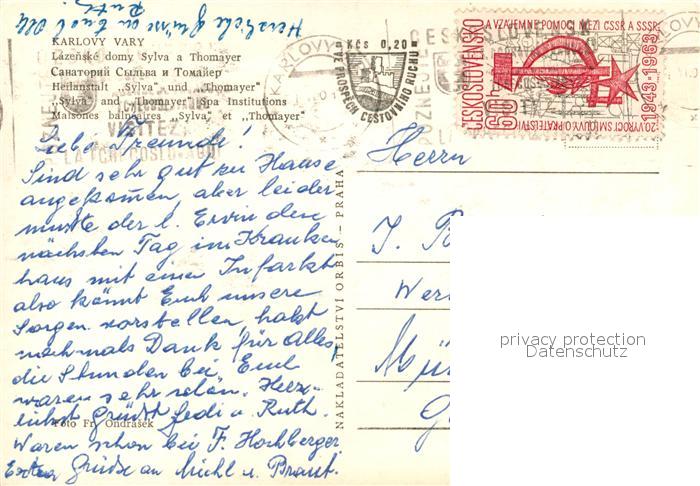 Herzliche Grüsse an Euch alle
Ruth
KARLOVY VARY
Lázeňské domy Sylva a Thomayer
Санаторий Сыльва и Томайер
Heilanstalt „Sylva" und „Thomayer"
„Sylva" and „Thomayer" Spa Institutions
Maisones balnéaires „Sylva" et „Thomayer"
Liebe Freunde!
Sind sehr gut zu Hause
angekommen, aber leider
musste der l. Erwin den
nächsten Tag im Kranken
haus mit einen Infarkt
also könnt Euch unsere
Sorgen vorstellen, habt
nochmals Dank für Alles,
die Stunden bei Euch
waren sehr schön. Herz-
lichst Grüsst Fedi u. Ruth.
Foto Fr. Ondrášek
Waren schon bei F. Hochberger
Extra Grüsse an Michl u. Braut.
NAKLADATELSTVÍ ORBIS - PRAHA
KARLOVY
Kčs 0,20
VE PROSPĚCH CESTOVNÍHO RUCHU
ČESKOSLOVENSKO
60
A VZÁJEMNÉ POMOCI MEZI ČSSR A SSSR
1943-1963
20. VÝROČÍ SMLOUVY O PŘÁTELSTVÍ
Herrn
J.
Wer
Mün
privacy protection
Datenschutz